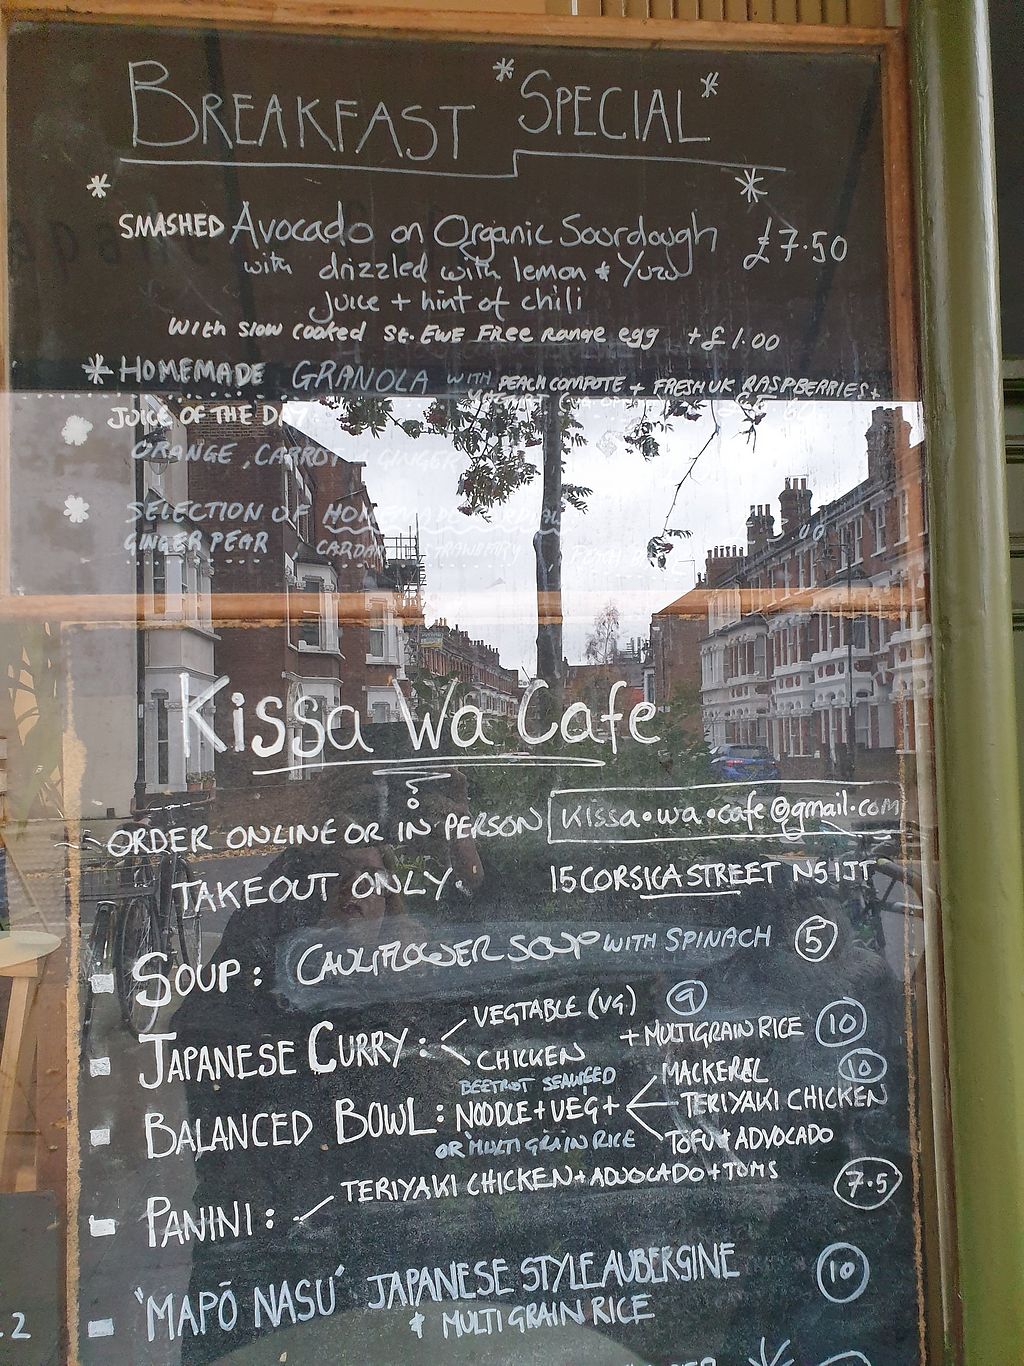 BREAKFAST *SPECIAL*
* *
SMASHED Avocado on Organic Sourdough £7.50
with drizzled with lemon & Yuzu
juice + hint of chili
With slow cooked St. Ewe Free Range egg +£1.00
* HOMEMADE GRANOLA WITH PEACH COMPOTE + FRESH UK RASPBERRIES +
JUICE OF THE DAY:
ORANGE, CARROT GINGER
SELECTION OF HOMEMADE
GINGER PEAR
Kissa Wa Cafe
ORDER ONLINE OR IN PERSON kissa.wa.cafe@gmail.com
TAKEOUT ONLY. 15 CORSICA STREET N5 1JT
SOUP: CAULIFLOWER SOUP WITH SPINACH 5
JAPANESE CURRY: VEGTABLE (VG) 9
CHICKEN + MULTIGRAIN RICE 10
BEETROT SEAWEED MACKERAL 10
BALANCED BOWL: NOODLE + VEG + TERIYAKI CHICKEN
OR MULTIGRAIN RICE TOFU & ADVOCADO
PANINI: TERIYAKI CHICKEN + ADVOCADO + TOMS 7.5
'MAPŌ NASU' JAPANESE STYLE AUBERGINE 10
& MULTIGRAIN RICE
.2